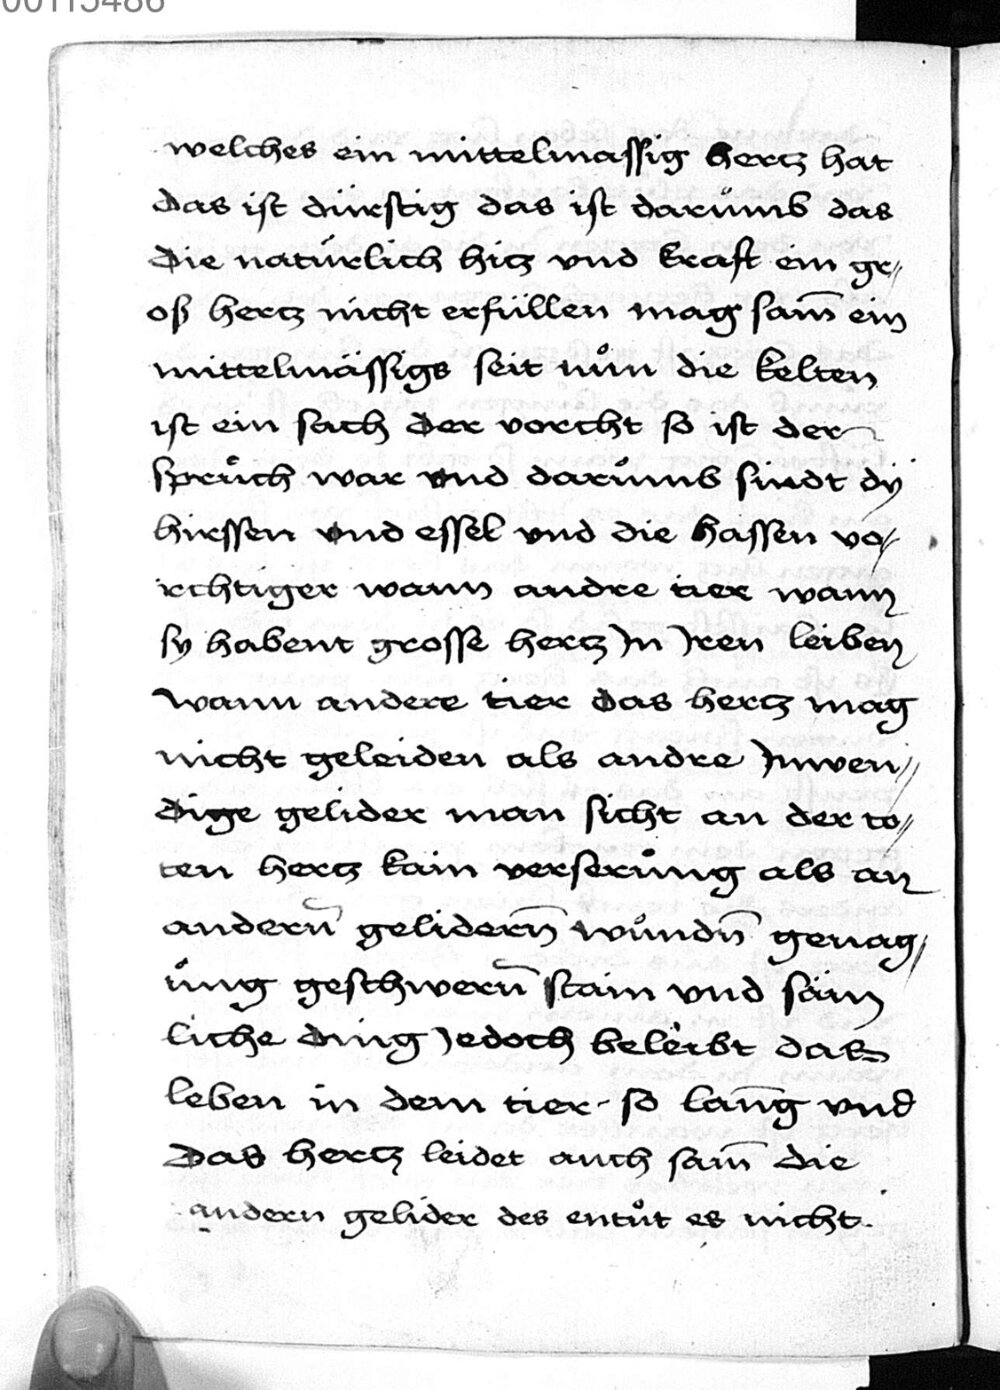 00115486
welches ein mittelmassig hertz hat
das ist dürstig das ist darůmb das
die natürlich hitz vnd kraft ein gr//
oß hertz nicht erfüllen mag sam̄ ein
mittelmässigs seit nůn die kelten
ist ein sach der vorcht so ist der
sprůch war vnd darůmb sindt dy
hirssen vnd essel vnd die hassen vo//
rchtiger wann andre tier wann
sy habent grosse hertz Jn Jren leiben
wann andere tier das hertz mag
nicht geleiden als andre Jnwen//
dige gelider man sicht an der to//
ten hertz kain verserůng als an
andern̄ gelidern̄ wůndn̄ genag//
ůng geschwern̄ stain vnd säm
liche ding Jedoch beleibt das
leben in dem tier so lan̄g vnd
das hertz leidet auch sam̄ die
andern gelider des entůt es nicht